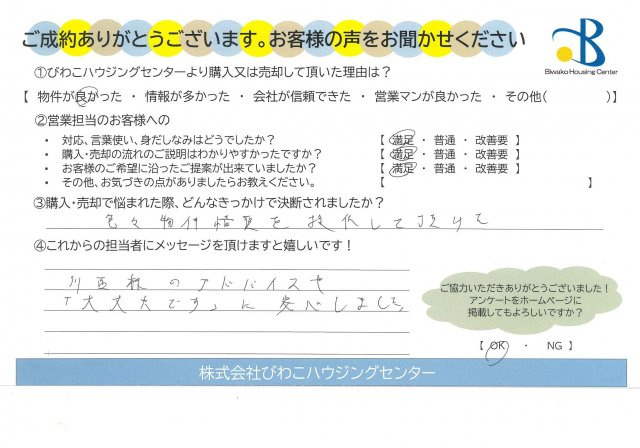 ご成約ありがとうございます。お客様の声をお聞かせください
Biwako Housing Center
①びわこハウジングセンターより購入又は売却して頂いた理由は？
【 物件が良かった ・ 情報が多かった ・ 会社が信頼できた ・ 営業マンが良かった ・ その他( )】
②営業担当のお客様への
・ 対応、言葉使い、身だしなみはどうでしたか？ 【 満足 ・ 普通 ・ 改善要 】
・ 購入・売却の流れのご説明はわかりやすかったですか？ 【 満足 ・ 普通 ・ 改善要 】
・ お客様のご希望に沿ったご提案が出来ていましたか？ 【 満足 ・ 普通 ・ 改善要 】
・ その他、お気づきの点がありましたらお教えください。 【 】
③購入・売却で悩まれた際、どんなきっかけで決断されましたか？
色々物件情報を提供して頂けて
④これからの担当者にメッセージを頂けますと嬉しいです！
様のアドバイスや
「大丈夫です」に安心しました
ご協力いただきありがとうございました！
アンケートをホームページに
掲載してもよろしいですか？
【 OK ・ NG 】
株式会社びわこハウジングセンター